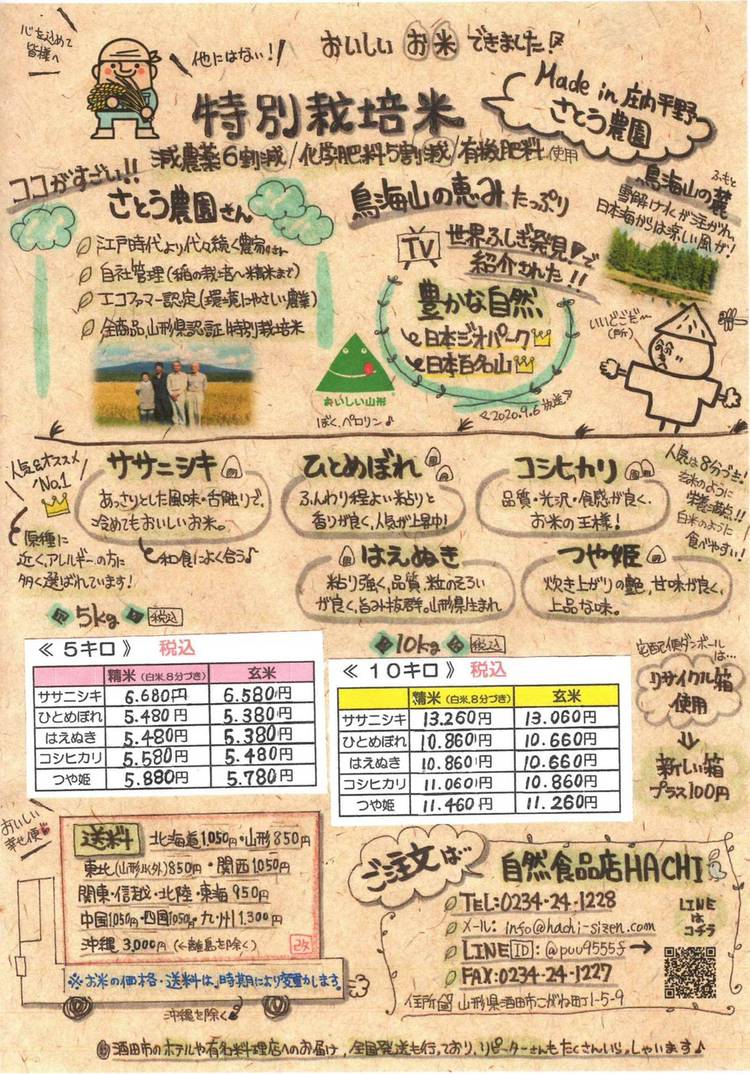 心を込めて
皆様へ
他にはない！
おいしいお米できました！
特別栽培米
Made in 庄内平野
さとう農園
減農薬6割減/化学肥料5割減/有機肥料使用
ココがすごい!!
さとう農園さん
江戸時代より代々続く農家さん
自社管理(稲の栽培〜精米まで)
エコファーマー認定(環境にやさしい農業)
全商品、山形県認証特別栽培米
鳥海山の恵みたっぷり
TV
世界ふしぎ発見♥で
紹介された!!
豊かな自然
日本ジオパーク
日本百名山
≪2020.9.6放送≫
おいしい山形
ぼく、ペロリン♪
ふもと
鳥海山の麓
雪解け水が注がれ、
日本海からは涼しい風が！
いいどごだ〜
(戸所)
人気&オススメ
No.1
ササニシキ
あっさりとした風味・舌触りで、
冷めてもおいしいお米。
和食によく合う♪
原種に
近く、アレルギーの方に
多く選ばれています！
ひとめぼれ
ふんわり程よい粘りと
香りが良く、人気が上昇中！
コシヒカリ
品質・光沢・食感が良く、
お米の王様！
人気は8分づき!!
玄米のように
栄養満点!!
白米のように
食べやすい！
はえぬき
粘り強く、品質、粒のそろい
が良く、旨み抜群。山形県生まれ
つや姫
炊き上がりの艶、甘味が良く、
上品な味。
5kg 税込
≪ 5キロ ≫ 税込
精米(白米、8分づき) 玄米
ササニシキ 6.680円 6.580円
ひとめぼれ 5.480円 5.380円
はえぬき 5.480円 5.380円
コシヒカリ 5.580円 5.480円
つや姫 5.880円 5.780円
10kg 税込
≪ 10キロ ≫ 税込
精米(白米、8分づき) 玄米
ササニシキ 13.260円 13.060円
ひとめぼれ 10.860円 10.660円
はえぬき 10.860円 10.660円
コシヒカリ 11.060円 10.860円
つや姫 11.460円 11.260円
宅配便ダンボール
は…
リサイクル箱
使用
↓
新しい箱
プラス100円
おいしい
幸せ便
送料
北海道1.050円・山形850円
東北(山形以外)850円・関西1050円
関東・信越・北陸・東海950円
中国1050円・四国1050円・九州1.300円
沖縄 3,000円(←離島を除く)
改
※お米の価格・送料は、時期により変動します。
沖縄を除く
ご注文は…
自然食品店HACHI
TEL:0234-24-1228
メール: info@hachi-sizen.com
LINE ID: @puu9555f →
FAX:0234-24-1227
住所 山形県酒田市こがね町1-5-9
LINE
は
コチラ
酒田市のホテルや有名料理店へのお届け、全国発送も行っており、リピーターさんもたくさんいらっしゃいます♪